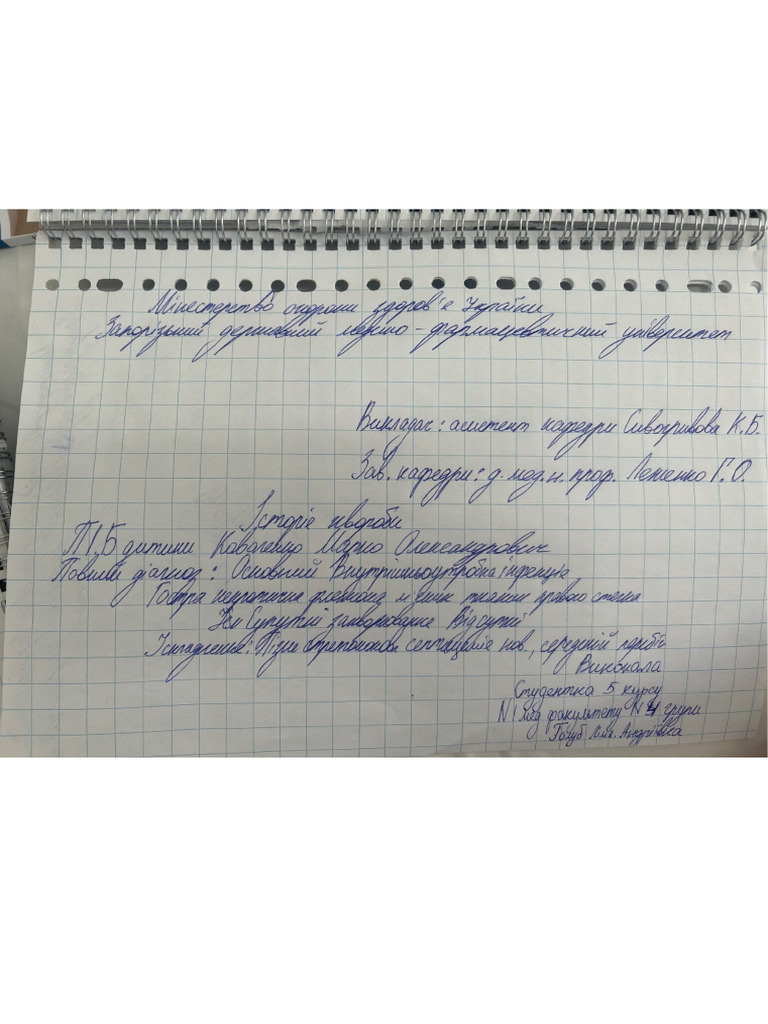 Міністерство охорони здоров'є України
Запорізький державний медико-фармацевтичний університет
Викладач: асистент кафедри Сивогривова К.Б.
Зав. кафедри: д. мед. н. проф. Леженко Г.О.
Історіє хвороби
П.І.Б дитини Коваленко Марко Олександрович
Повний діагноз: Основний Внутрішньоутробна інфекція
Гостра некротична флегмона м'яких тканин правого стегна
Супутні захворювання Відсутні
Ускладнення: Пізня стрептококова септицеміє нов., середній перебіг
Виконала
Студентка 5 курсу
N 1 мед факультету N 4 групи
Голуб Андріївна